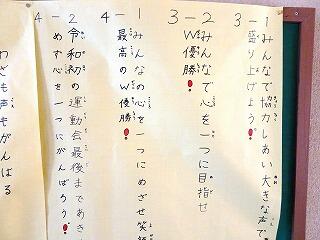 3-1みんなで協力しあい大きな声で
盛り上げよう!
3-2みんなで心を一つに目指せ
W優勝!
4-1みんなの心を一つにめざせ笑顔
最高のW優勝!
4-2令和初の運動会最後まであき
めず心を一つにがんばろう!
わざも声もがんばる